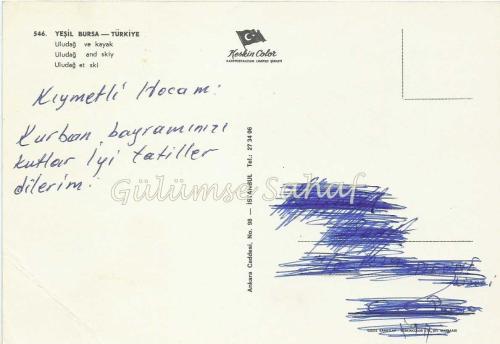 546. YEŞİL BURSA — TÜRKİYE
Uludağ ve kayak
Uludağ and skiy
Uludağ et ski
Keskin Color
KARTPOSTALCILIK LIMITED ŞİRKETİ
Kıymetli Hocam:
Kurban bayramınızı
kutlar İyi tatiller
dilerim.
Gülümse Sahaf
Ankara Caddesi, No. 98 — İSTANBUL Tel.: 27 34 06